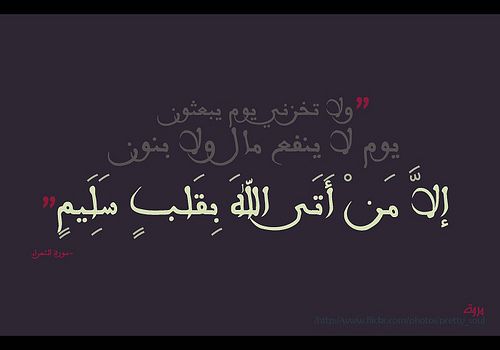 "ولا تخزني يوم يبعثون
يوم لا ينفع مال ولا بنون
إلاَّ مَنْ أَتَى اللَّهَ بِقَلبٍ سَلِيمٍ"
-سورة الشعراء
مروة
http://www.flickr.com/photos/pretty_soul/